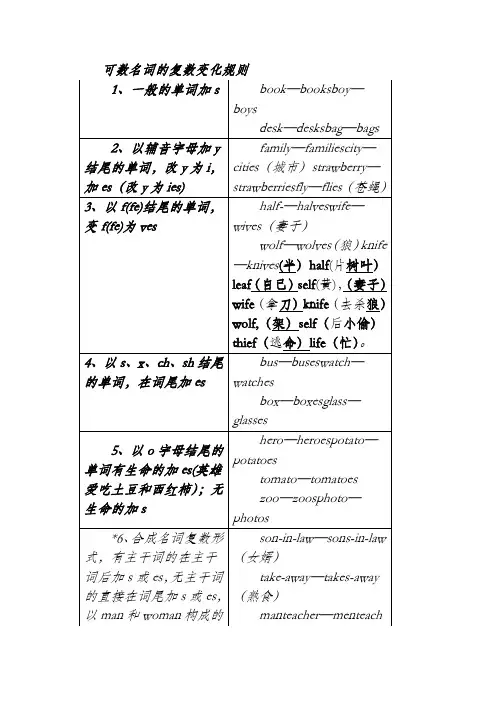 可数名词的复数变化规则
1、一般的单词加 s
book—booksboy—
boys
desk—desksbag—bags
2、以辅音字母加 y
结尾的单词，改 y 为 i，
加 es（改 y 为 ies)
family—familiescity—
cities（城市）strawberry—
strawberriesfly—flies（苍蝇）
3、以 f(fe)结尾的单词，
变 f(fe)为 ves
half-—halveswife—
wives（妻子）
wolf—wolves（狼）knife
—knives(半）half(片树叶）
leaf（自己）self(黄),（妻子）
wife（拿刀）knife（去杀狼）
wolf,（架）self（后小偷）
thief（逃命）life（忙）。
4、以 s、x、ch、sh 结尾
的单词，在词尾加 es
bus—buseswatch—
watches
box—boxesglass—
glasses
5、以 o 字母结尾的
单词有生命的加 es(英雄
爱吃土豆和西红柿）；无
生命的加 s
hero—heroespotato—
potatoes
tomato—tomatoes
zoo—zoosphoto—
photos
*6、合成名词复数形
式，有主干词的在主干
词后加 s 或 es，无主干词
的直接在词尾加 s 或 es，
以 man 和 woman 构成的
son-in-law—sons-in-law
（女婿）
take-away—takes-away
（熟食）
manteacher—menteach